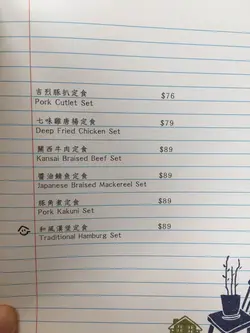 吉烈豚扒定食 $76
Pork Cutlet Set
七味雞唐揚定食 $79
Deep Fried Chicken Set
關西牛肉定食 $89
Kansai Braised Beef Set
醬油鯖魚定食 $89
Japanese Braised Mackereel Set
豚角煮定食 $89
Pork Kakuni Set
和風漢堡定食 $89
Traditional Hamburg Set